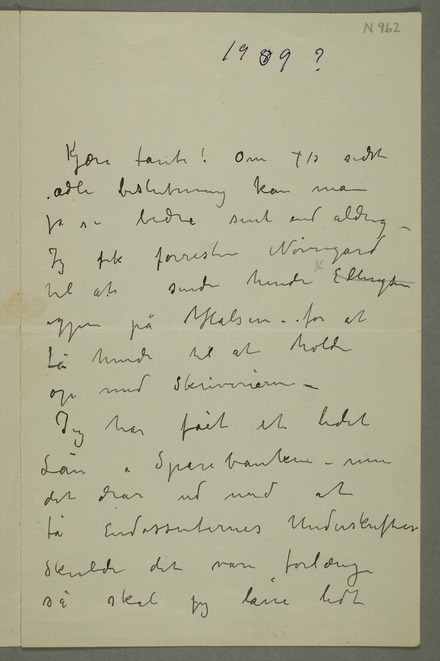 N 962
1909 ?
Kjære tante! Om sidst
ædle beslutning kan man
jo si bedre sent end aldrig –
Jeg fik forresten Nørregård
til at sende hende Ellingsen
igjen på Halsen – for at
få hende til at holde
op med skriverierne –
Jeg har fåit et lidet
Lån i Sparebanken – men
det drar ud med at
få Endossenternes Underskrifter
Skulde det vare forlænge
så skal jeg låne lidt